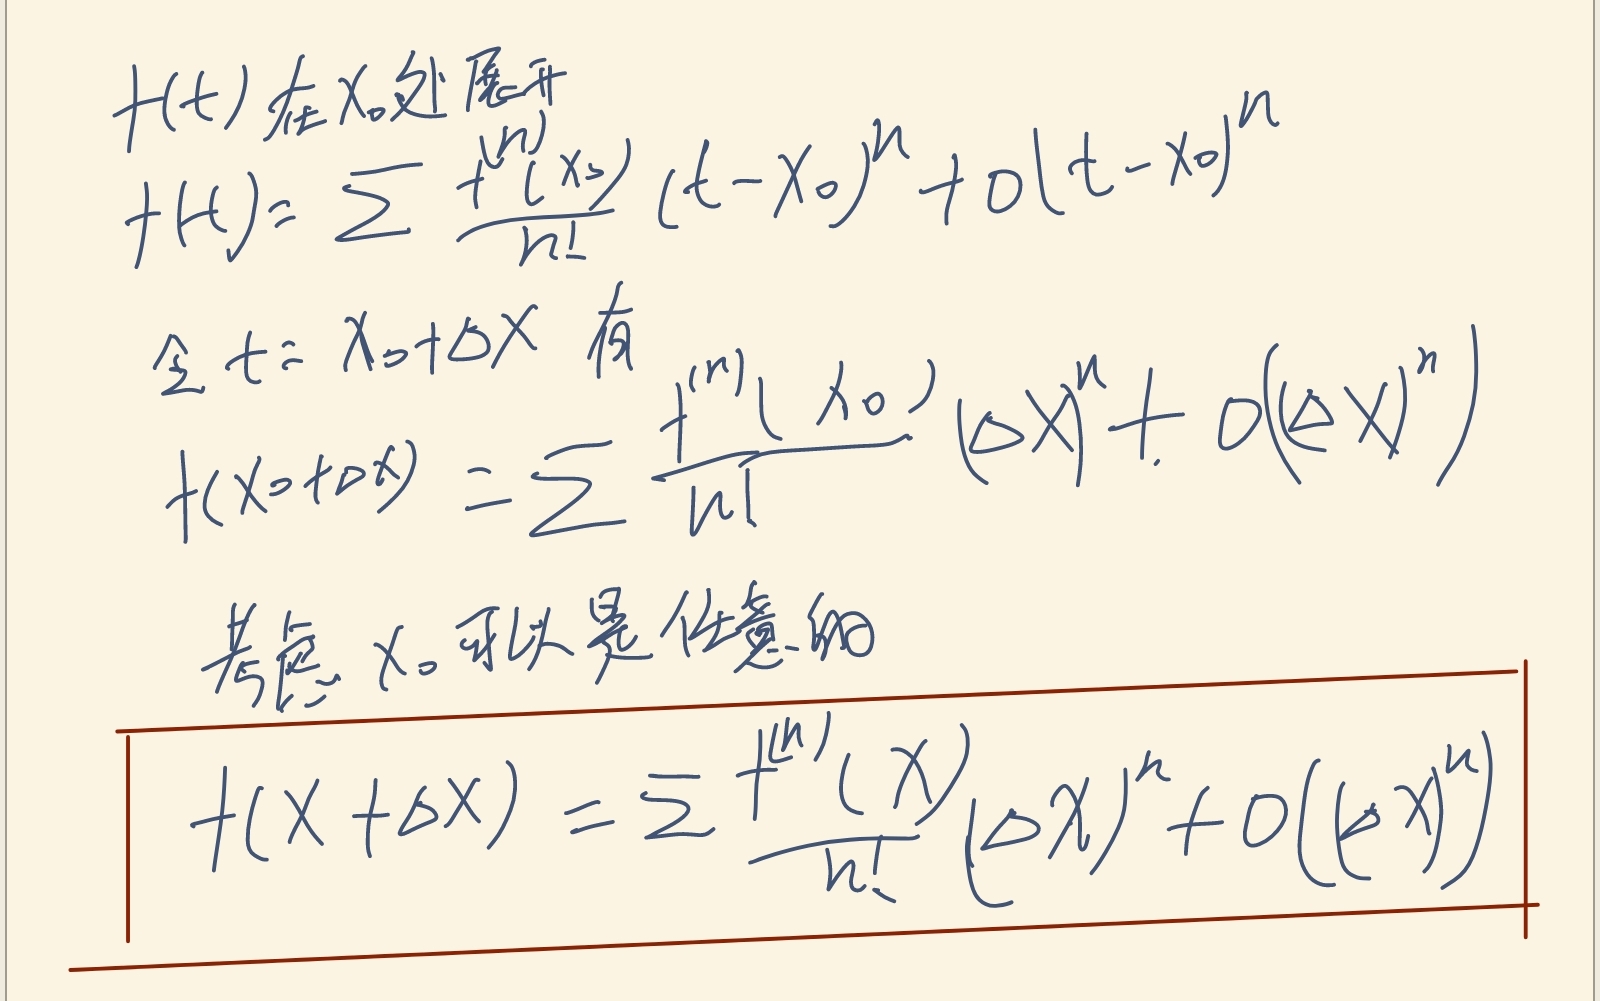 f(t) 在 x₀ 处展开
f(t) = Σ f⁽ⁿ⁾(x₀)/n! (t-x₀)ⁿ + o(t-x₀)ⁿ
令 t = x₀+Δx 有
f(x₀+Δx) = Σ f⁽ⁿ⁾(x₀)/n! (Δx)ⁿ + o((Δx)ⁿ)
考虑 x₀ 可以是任意的
f(x+Δx) = Σ f⁽ⁿ⁾(x)/n! (Δx)ⁿ + o((Δx)ⁿ)